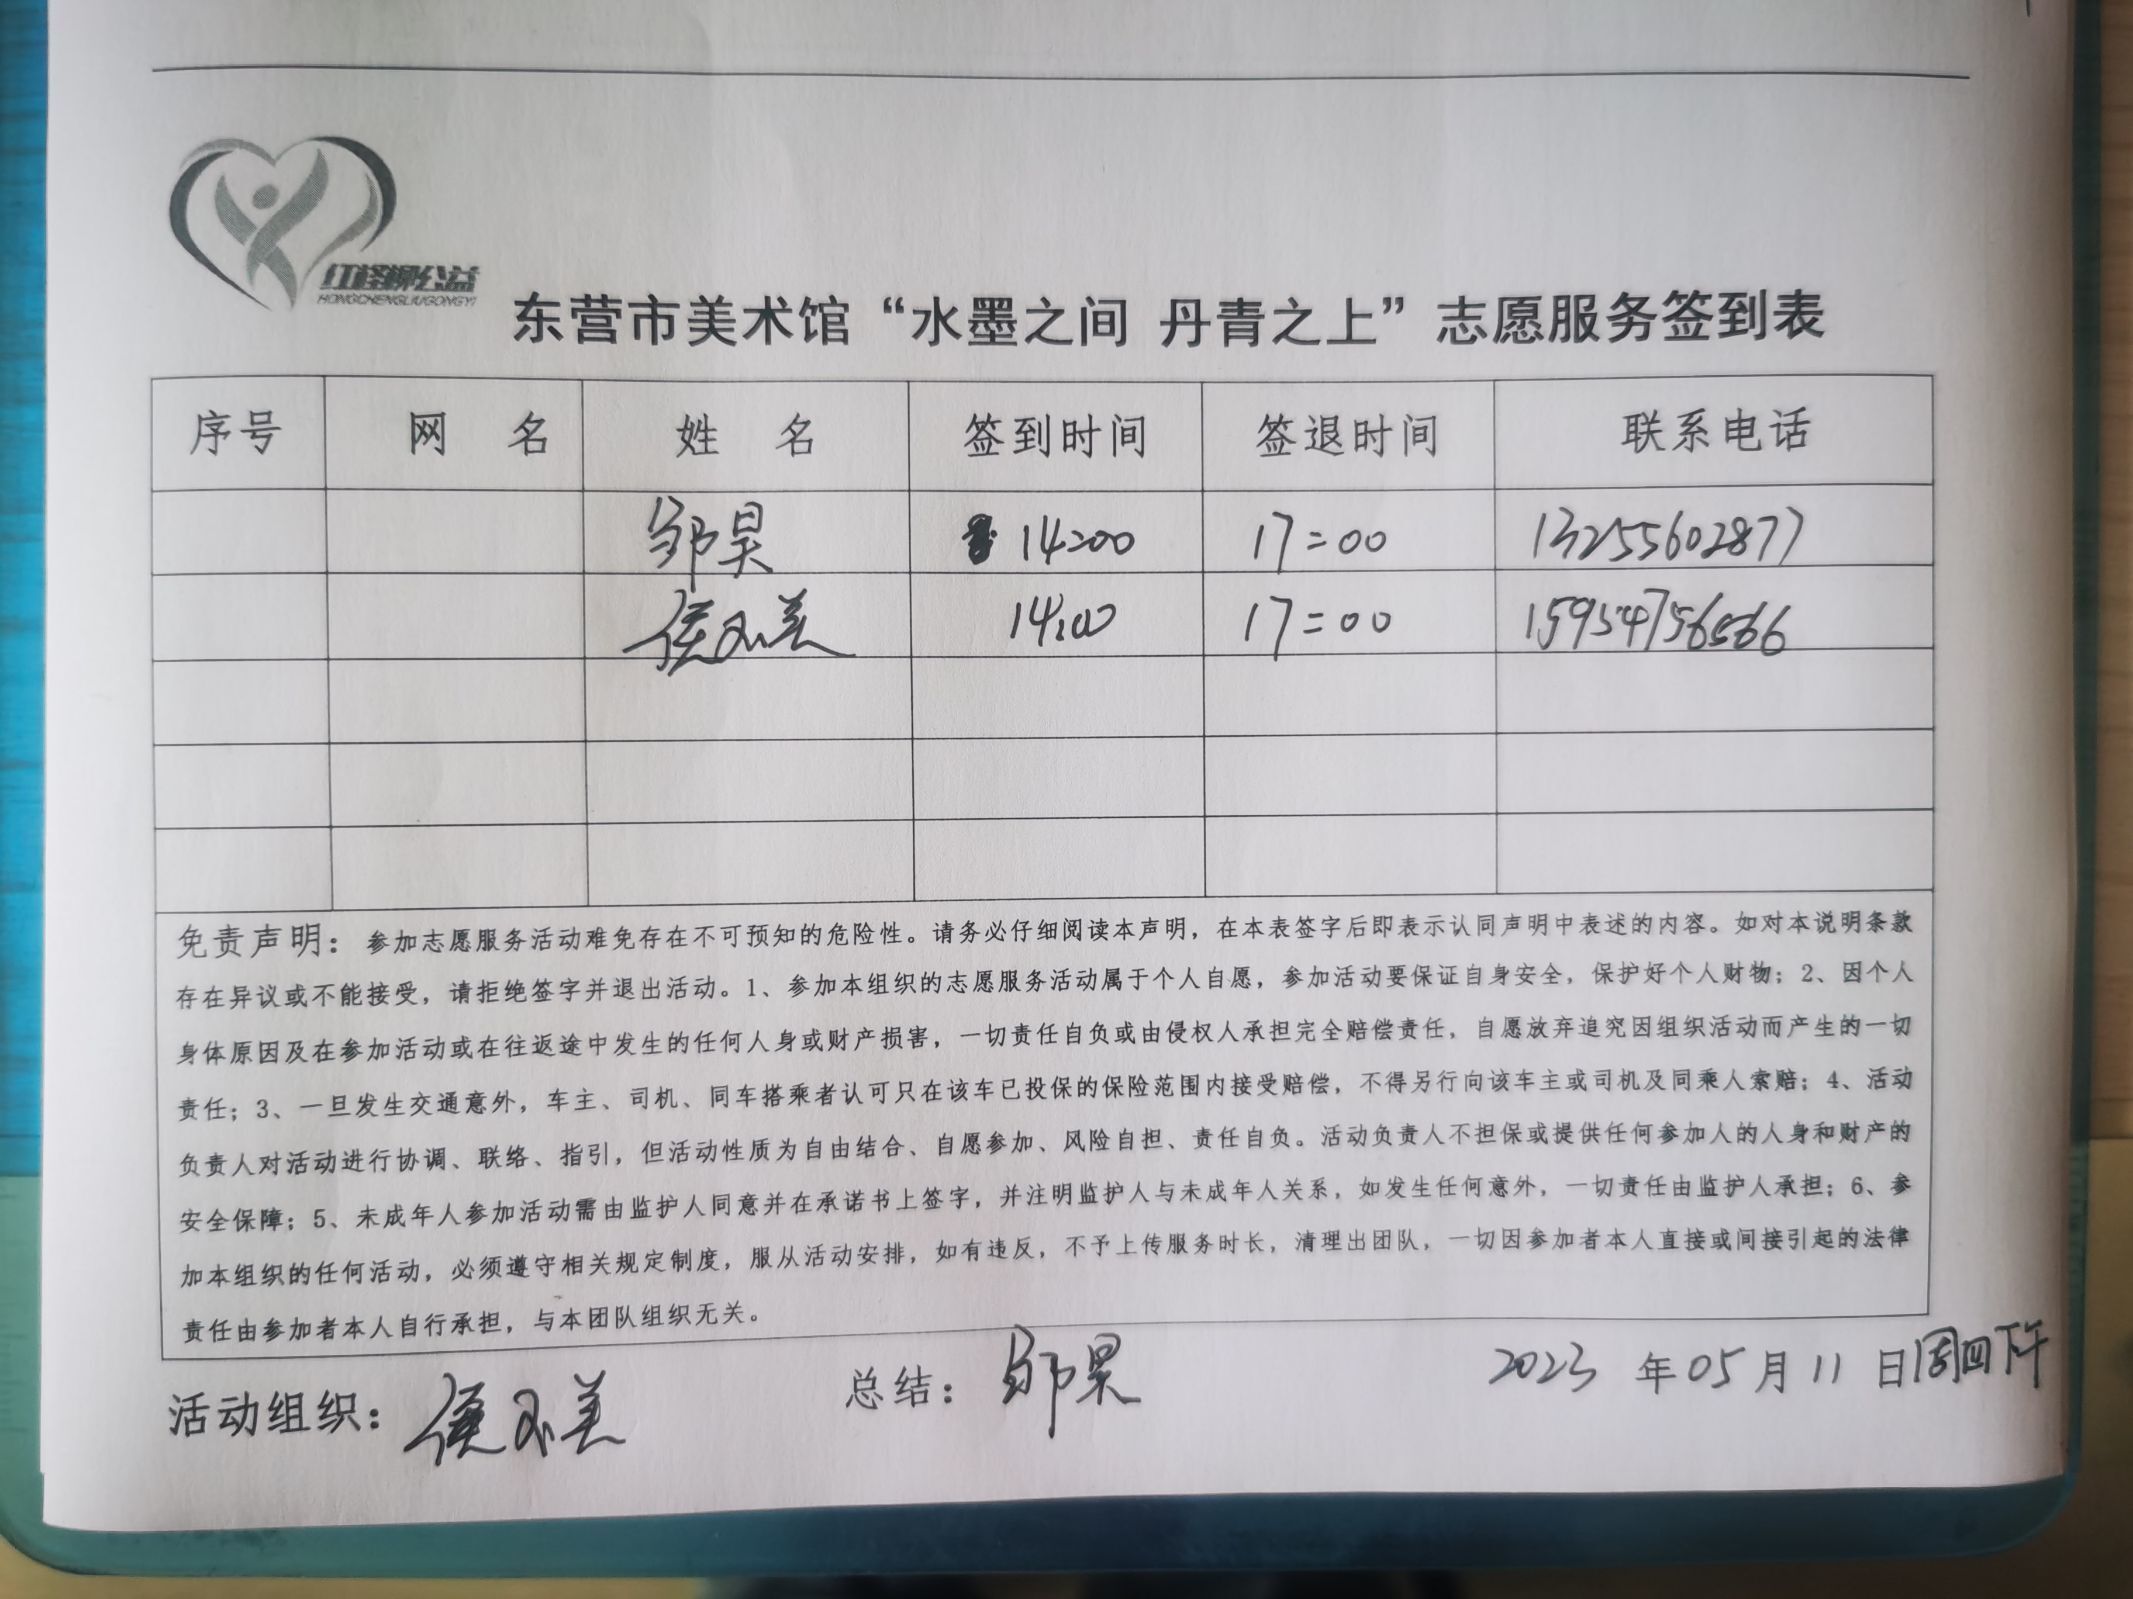 红柽柳公益
HONGCHENGLIUGONGYI
东营市美术馆“水墨之间 丹青之上”志愿服务签到表
序号 网 名 姓 名 签到时间 签退时间 联系电话
邹昊 14:00 17:00 13255602877
侯玉美 14:00 17:00 15954756566
免责声明：参加志愿服务活动难免存在不可预知的危险性。请务必仔细阅读本声明，在本表签字后即表示认同声明中表述的内容。如对本说明条款
存在异议或不能接受，请拒绝签字并退出活动。1、参加本组织的志愿服务活动属于个人自愿，参加活动要保证自身安全，保护好个人财物；2、因个人
身体原因及在参加活动或在往返途中发生的任何人身或财产损害，一切责任自负或由侵权人承担完全赔偿责任，自愿放弃追究因组织活动而产生的一切
责任；3、一旦发生交通意外，车主、司机、同车搭乘者认可只在该车已投保的保险范围内接受赔偿，不得另行向该车主或司机及同乘人索赔；4、活动
负责人对活动进行协调、联络、指引，但活动性质为自由结合、自愿参加、风险自担、责任自负。活动负责人不担保或提供任何参加人的人身和财产的
安全保障；5、未成年人参加活动需由监护人同意并在承诺书上签字，并注明监护人与未成年人关系，如发生任何意外，一切责任由监护人承担；6、参
加本组织的任何活动，必须遵守相关规定制度，服从活动安排，如有违反，不予上传服务时长，清理出团队，一切因参加者本人直接或间接引起的法律
责任由参加者本人自行承担，与本团队组织无关。
活动组织：侯玉美 总结：邹昊 2023 年 05 月 11 日周四下午